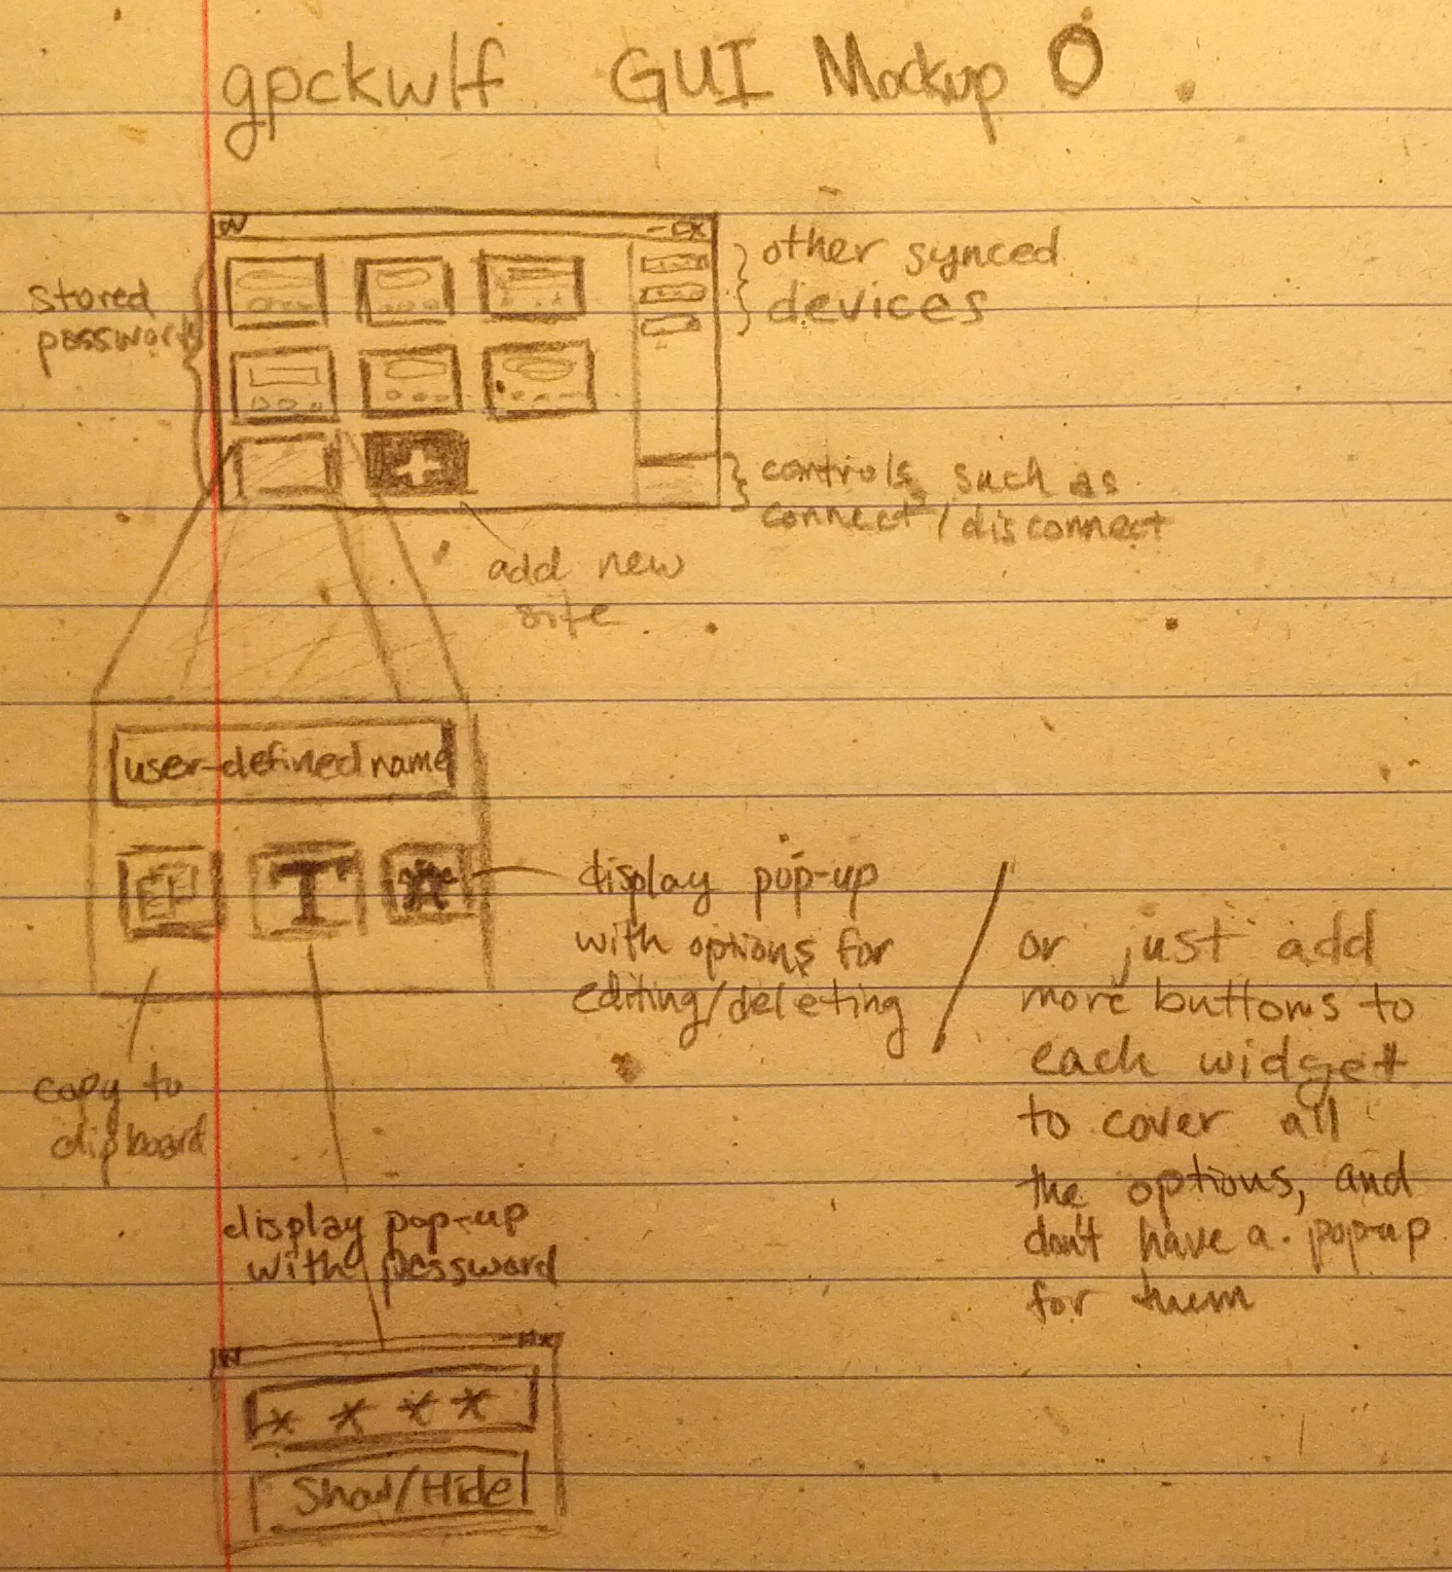 gpckwlf GUI Mockup 0
W
stored
passwords
other synced
devices
controls such as
connect/disconnect
add new
site
user-defined name
T
display pop-up
with options for
editing/deleting
/
or just add
more buttons to
each widget
to cover all
the options, and
don't have a pop-up
for them
copy to
clipboard
display pop-up
with password
W
* * * *
Show/Hide